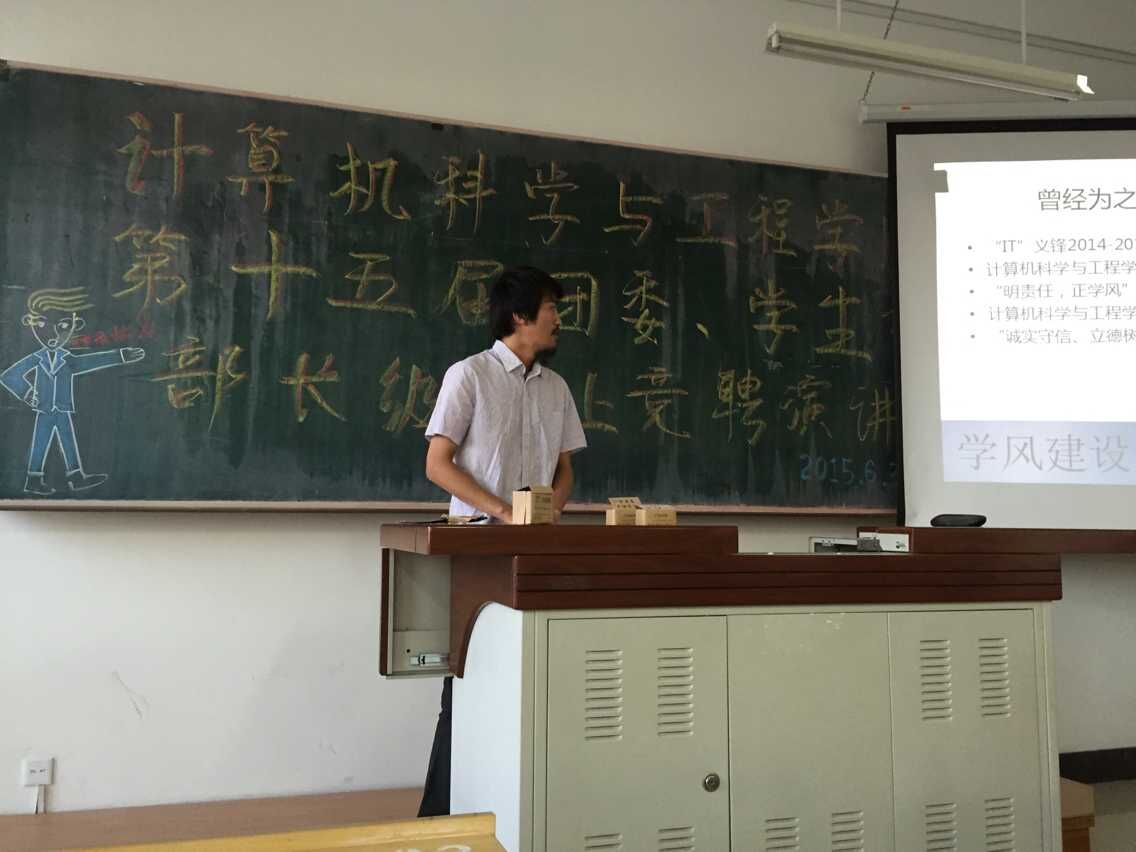 计算机科学与工程学
第十五届团委、学生
部长级 上竞聘演讲
2015.6.
曾经为之
• “IT”义锋2014-201
• 计算机科学与工程学
• “明责任，正学风”
• 计算机科学与工程学
• “诚实守信、立德树
学风建设